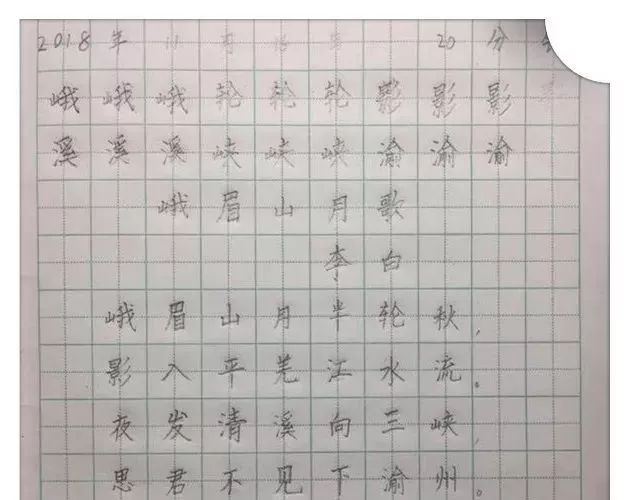 2018年11月 20分
峨峨峨轮轮轮影影影
溪溪溪峡峡峡渝渝渝
峨眉山月歌
李白
峨眉山月半轮秋，
影入平羌江水流。
夜发清溪向三峡，
思君不见下渝州。